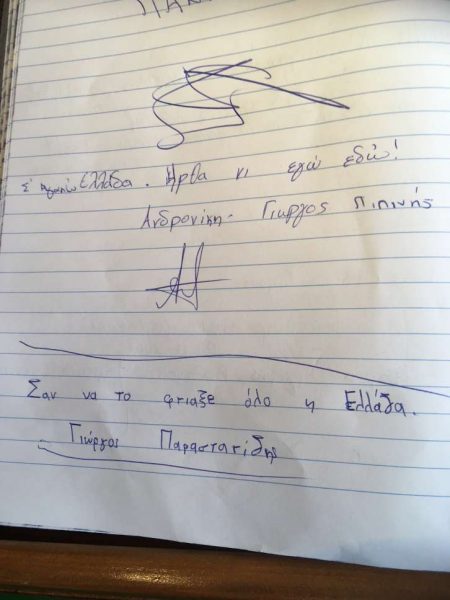 Σ' αγαπώ Ελλάδα. Ηρθα κι εγώ εδώ!
Ανδρονίκη - Γιωργος Πιπινής
Σαν να το φτιαξε όλο η Ελλάδα.
Γιώργος Παραστατίδης